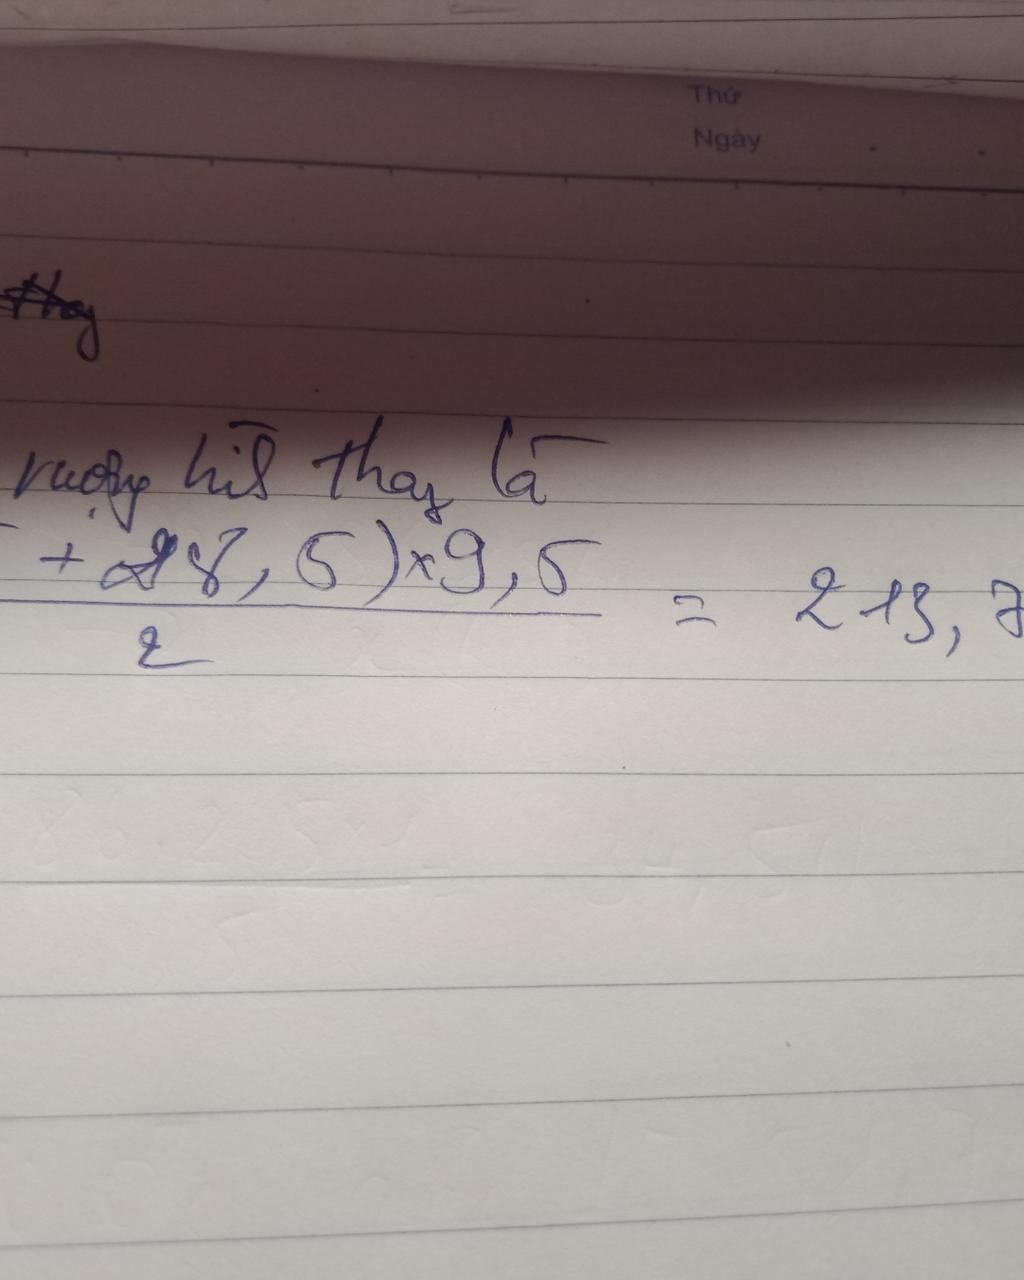 Thứ
Ngày
thay
ruộng hìn thay là
+ 28, 5) × 9, 5
2
= 213, 7